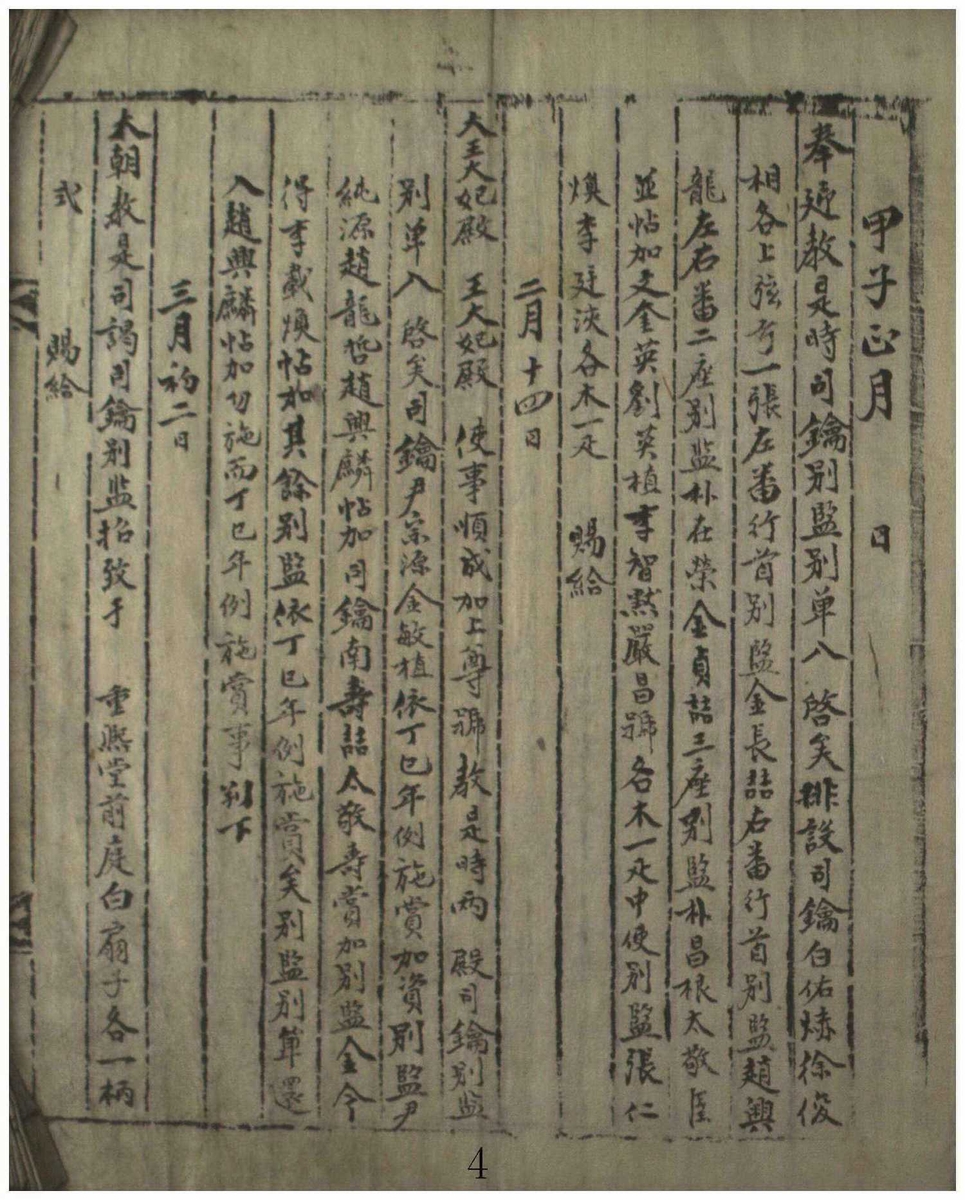 甲子正月 日
奉 迎教是時司鑰別監別单入 啓矣排設司鑰白佑 徐俊
相各上弦弓一張左番行首別監金長喆右番行首別監趙興
龍左右番二座別監朴在榮金貞喆三座別監朴昌根太敬
並帖加文金英劉英植李智 嚴昌號各木一疋中使別監張仁
煥李廷浹各木一疋 賜給
二月十四日
大王大妃殿 王大妃殿 使事順成加上尊號教是時兩 殿司鑰別監
別单入 啓矣司鑰尹宗源金敏植依丁巳年例施賞加資別監尹
純源趙龍哲趙興麟帖加司鑰南壽喆太敬壽賞加別監金今
得李載煥帖加其餘別監依丁巳年例施賞矣別監別单還
入趙興麟帖加勿施而丁巳年例施賞事判下
三月初二日
大朝教是司謁司鑰別監招致于 重熙堂前庭白扇子各一柄
式 賜給
4